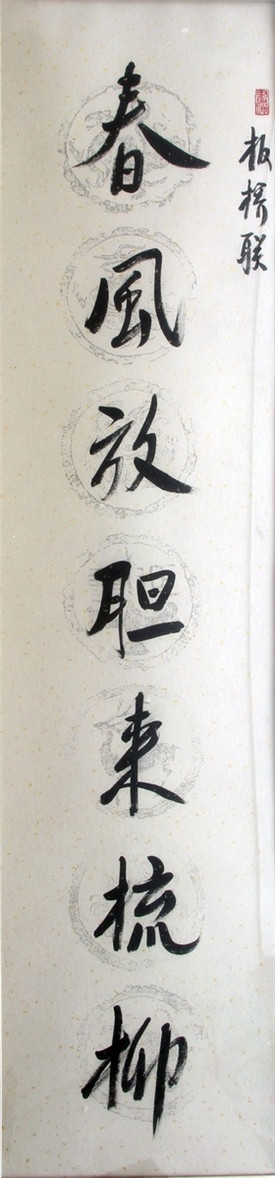 板桥联
春風放胆来梳柳